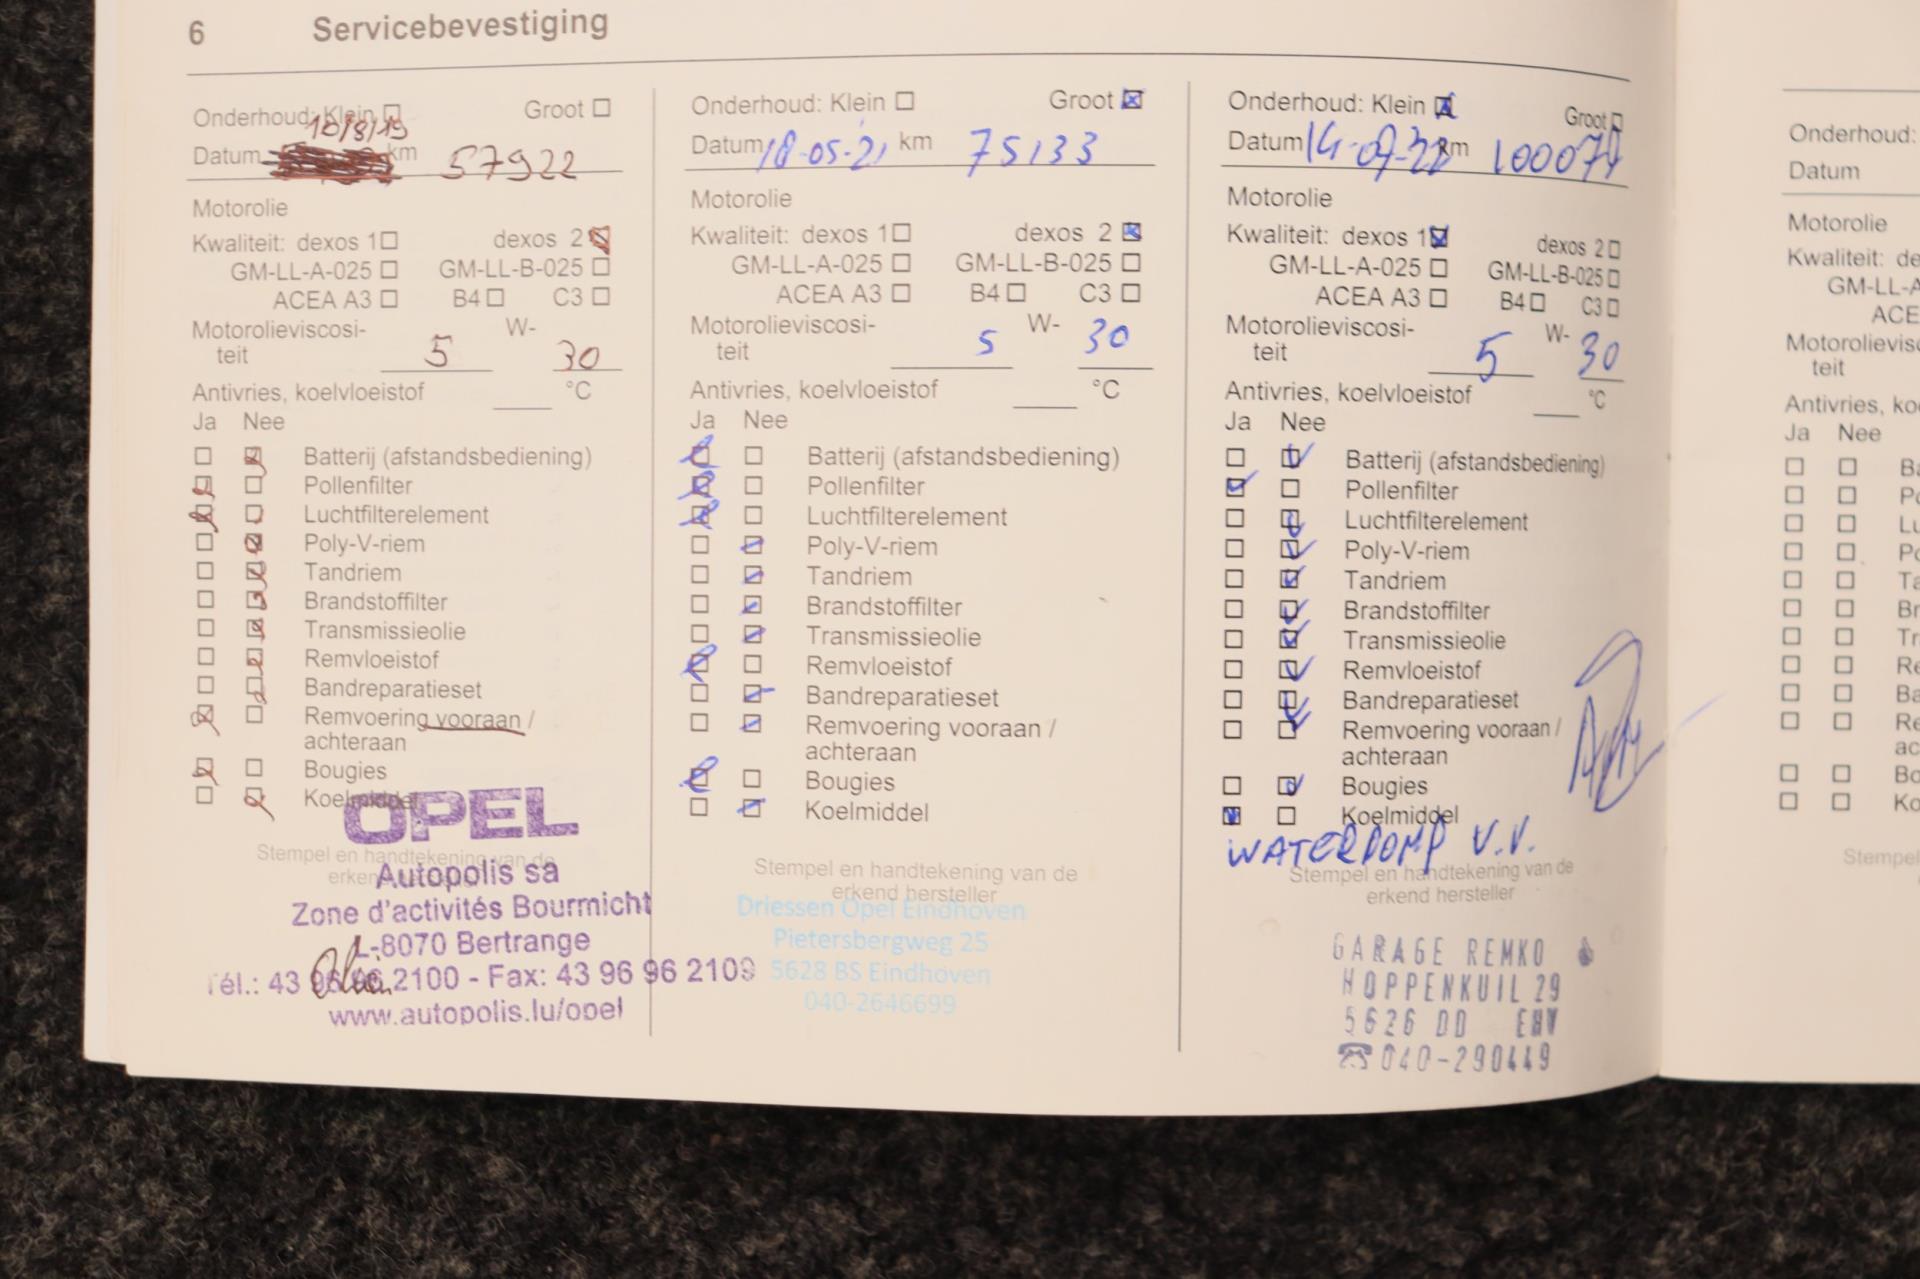 6 Servicebevestiging
Onderhoud: Klein Groot
10/8/19
Datum km 57922
Motorolie
Kwaliteit: dexos 1 dexos 2
GM-LL-A-025 GM-LL-B-025
ACEA A3 B4 C3
Motorolieviscosi- W-
teit 5 30
Antivries, koelvloeistof °C
Ja Nee
Batterij (afstandsbediening)
Pollenfilter
Luchtfilterelement
Poly-V-riem
Tandriem
Brandstoffilter
Transmissieolie
Remvloeistof
Bandreparatieset
Remvoering vooraan /
achteraan
Bougies
Koelmiddel
OPEL
Stempel en handtekening van de
Autopolis sa
Zone d'activités Bourmicht
L-8070 Bertrange
Tél.: 43 96 96 2100 - Fax: 43 96 96 2109
www.autopolis.lu/opel
Onderhoud: Klein Groot
Datum 18-05-21 km 75133
Motorolie
Kwaliteit: dexos 1 dexos 2
GM-LL-A-025 GM-LL-B-025
ACEA A3 B4 C3
Motorolieviscosi- W-
teit 5 30
Antivries, koelvloeistof °C
Ja Nee
Batterij (afstandsbediening)
Pollenfilter
Luchtfilterelement
Poly-V-riem
Tandriem
Brandstoffilter
Transmissieolie
Remvloeistof
Bandreparatieset
Remvoering vooraan /
achteraan
Bougies
Koelmiddel
Stempel en handtekening van de
erkend hersteller
Driessen Opel Eindhoven
Pietersbergweg 25
5628 BS Eindhoven
040-2646699
Onderhoud: Klein Groot
Datum km
Motorolie
Kwaliteit: dexos 1 dexos 2
GM-LL-A-025 GM-LL-B-025
ACEA A3 B4 C3
Motorolieviscosi- W-
teit 5 30
Antivries, koelvloeistof °C
Ja Nee
Batterij (afstandsbediening)
Pollenfilter
Luchtfilterelement
Poly-V-riem
Tandriem
Brandstoffilter
Transmissieolie
Remvloeistof
Bandreparatieset
Remvoering vooraan /
achteraan
Bougies
Koelmiddel
WATERPOMP V.V.
Stempel en handtekening van de
erkend hersteller
GARAGE REMKO
HOPPENKUIL 29
5626 DD EHV
040-290449
Onderhoud:
Datum
Motorolie
Kwaliteit: de
GM-LL-A
ACE
Motorolievisc
teit
Antivries, ko
Ja Nee
Ba
Po
Lu
Po
Ta
Br
Tr
Re
Ba
Re
ac
Bo
Ko
Stempel